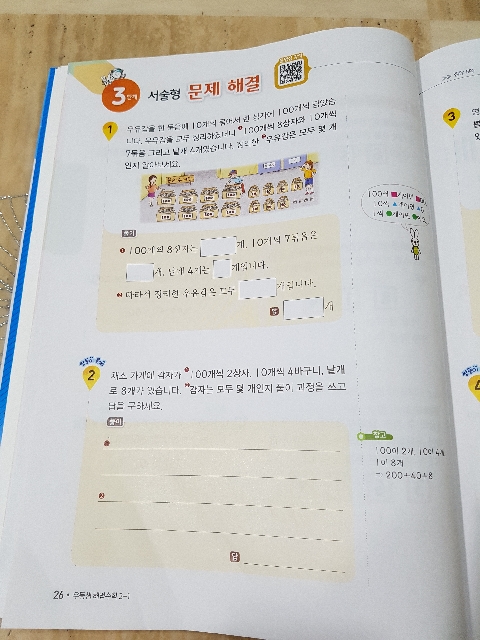 3단계 서술형 문제 해결
1 우유갑을 한 묶음에 10개씩 묶어서 한 상자에 100개씩 담았습
니다. 우유갑을 모두 정리하였더니 ❶100개씩 8상자와 10개씩
7묶음 그리고 낱개 4개였습니다. 정리한 ❷우유갑은 모두 몇 개
인지 알아보세요.
풀이
❶ 100개씩 8상자는 개, 10개씩 7묶음은
개, 낱개 4개는 개입니다.
❷ 따라서 정리한 우유갑은 모두 개입니다.
답 개
2 채소 가게에 감자가 ❶100개씩 2상자, 10개씩 4바구니, 낱개
로 8개가 있습니다. ❷감자는 모두 몇 개인지 풀이 과정을 쓰고
답을 구하세요.
풀이
❶
❷
답
참고
100이 2개, 10이 4개,
1이 8개
⇨ 200+40+8
3
4
26